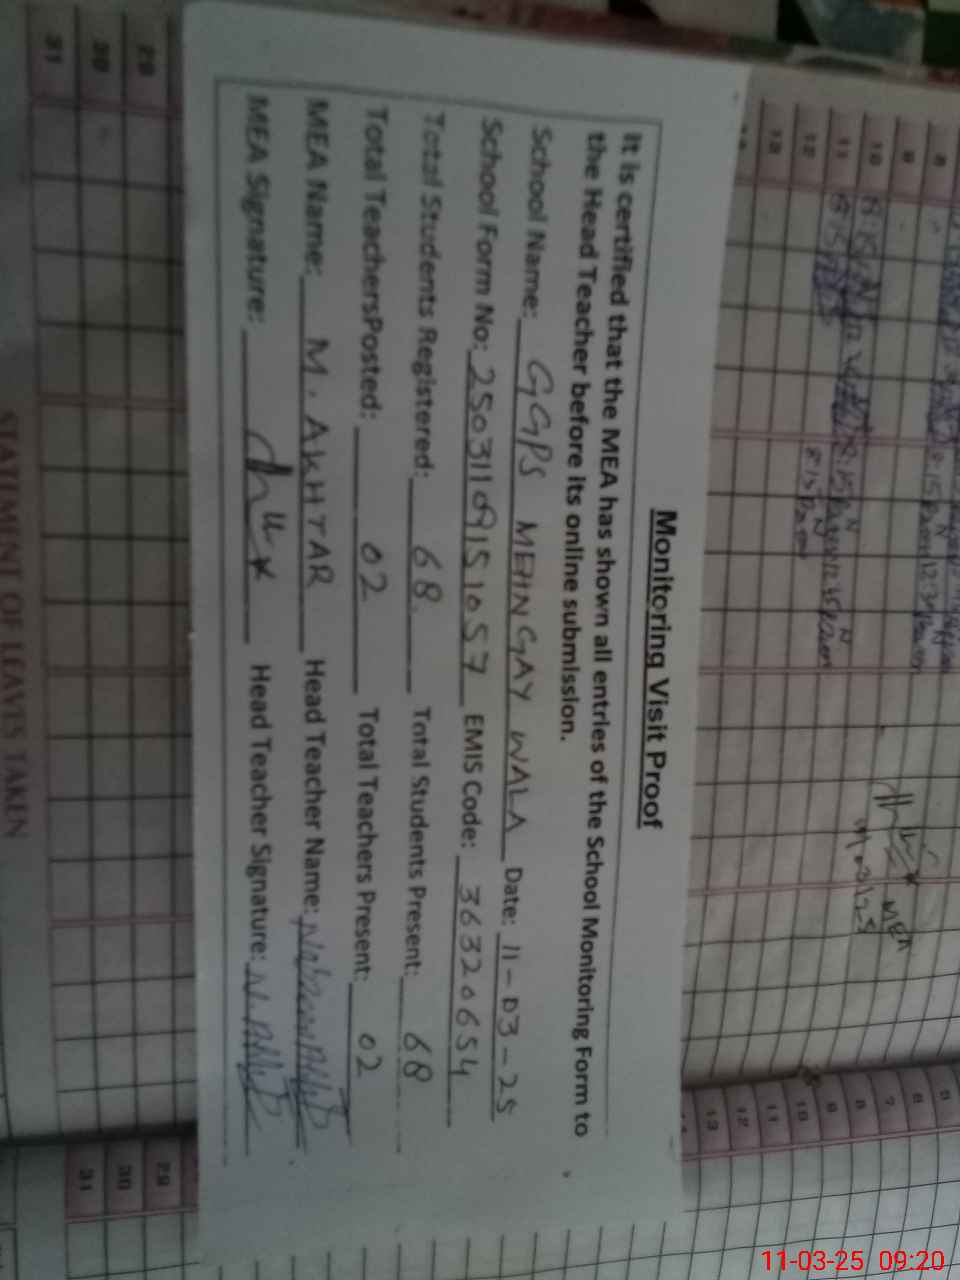 Monitoring Visit Proof
It is certified that the MEA has shown all entries of the School Monitoring Form to
the Head Teacher before its online submission.
School Name: GGPS MEHNGAY WALA Date: 11-03-25
School Form No: 25031109151057 EMIS Code: 36320654
Total Students Registered: 68 Total Students Present: 68
Total TeachersPosted: 02 Total Teachers Present: 02
MEA Name: M. AKHTAR Head Teacher Name:
MEA Signature: Head Teacher Signature:
STATEMENT OF LEAVES TAKEN
29
30
31
8
9
10
11
12
13
MEA
11/03/25
5
6
7
8
9
10
11
12
13
29
30
31
11-03-25 09:20